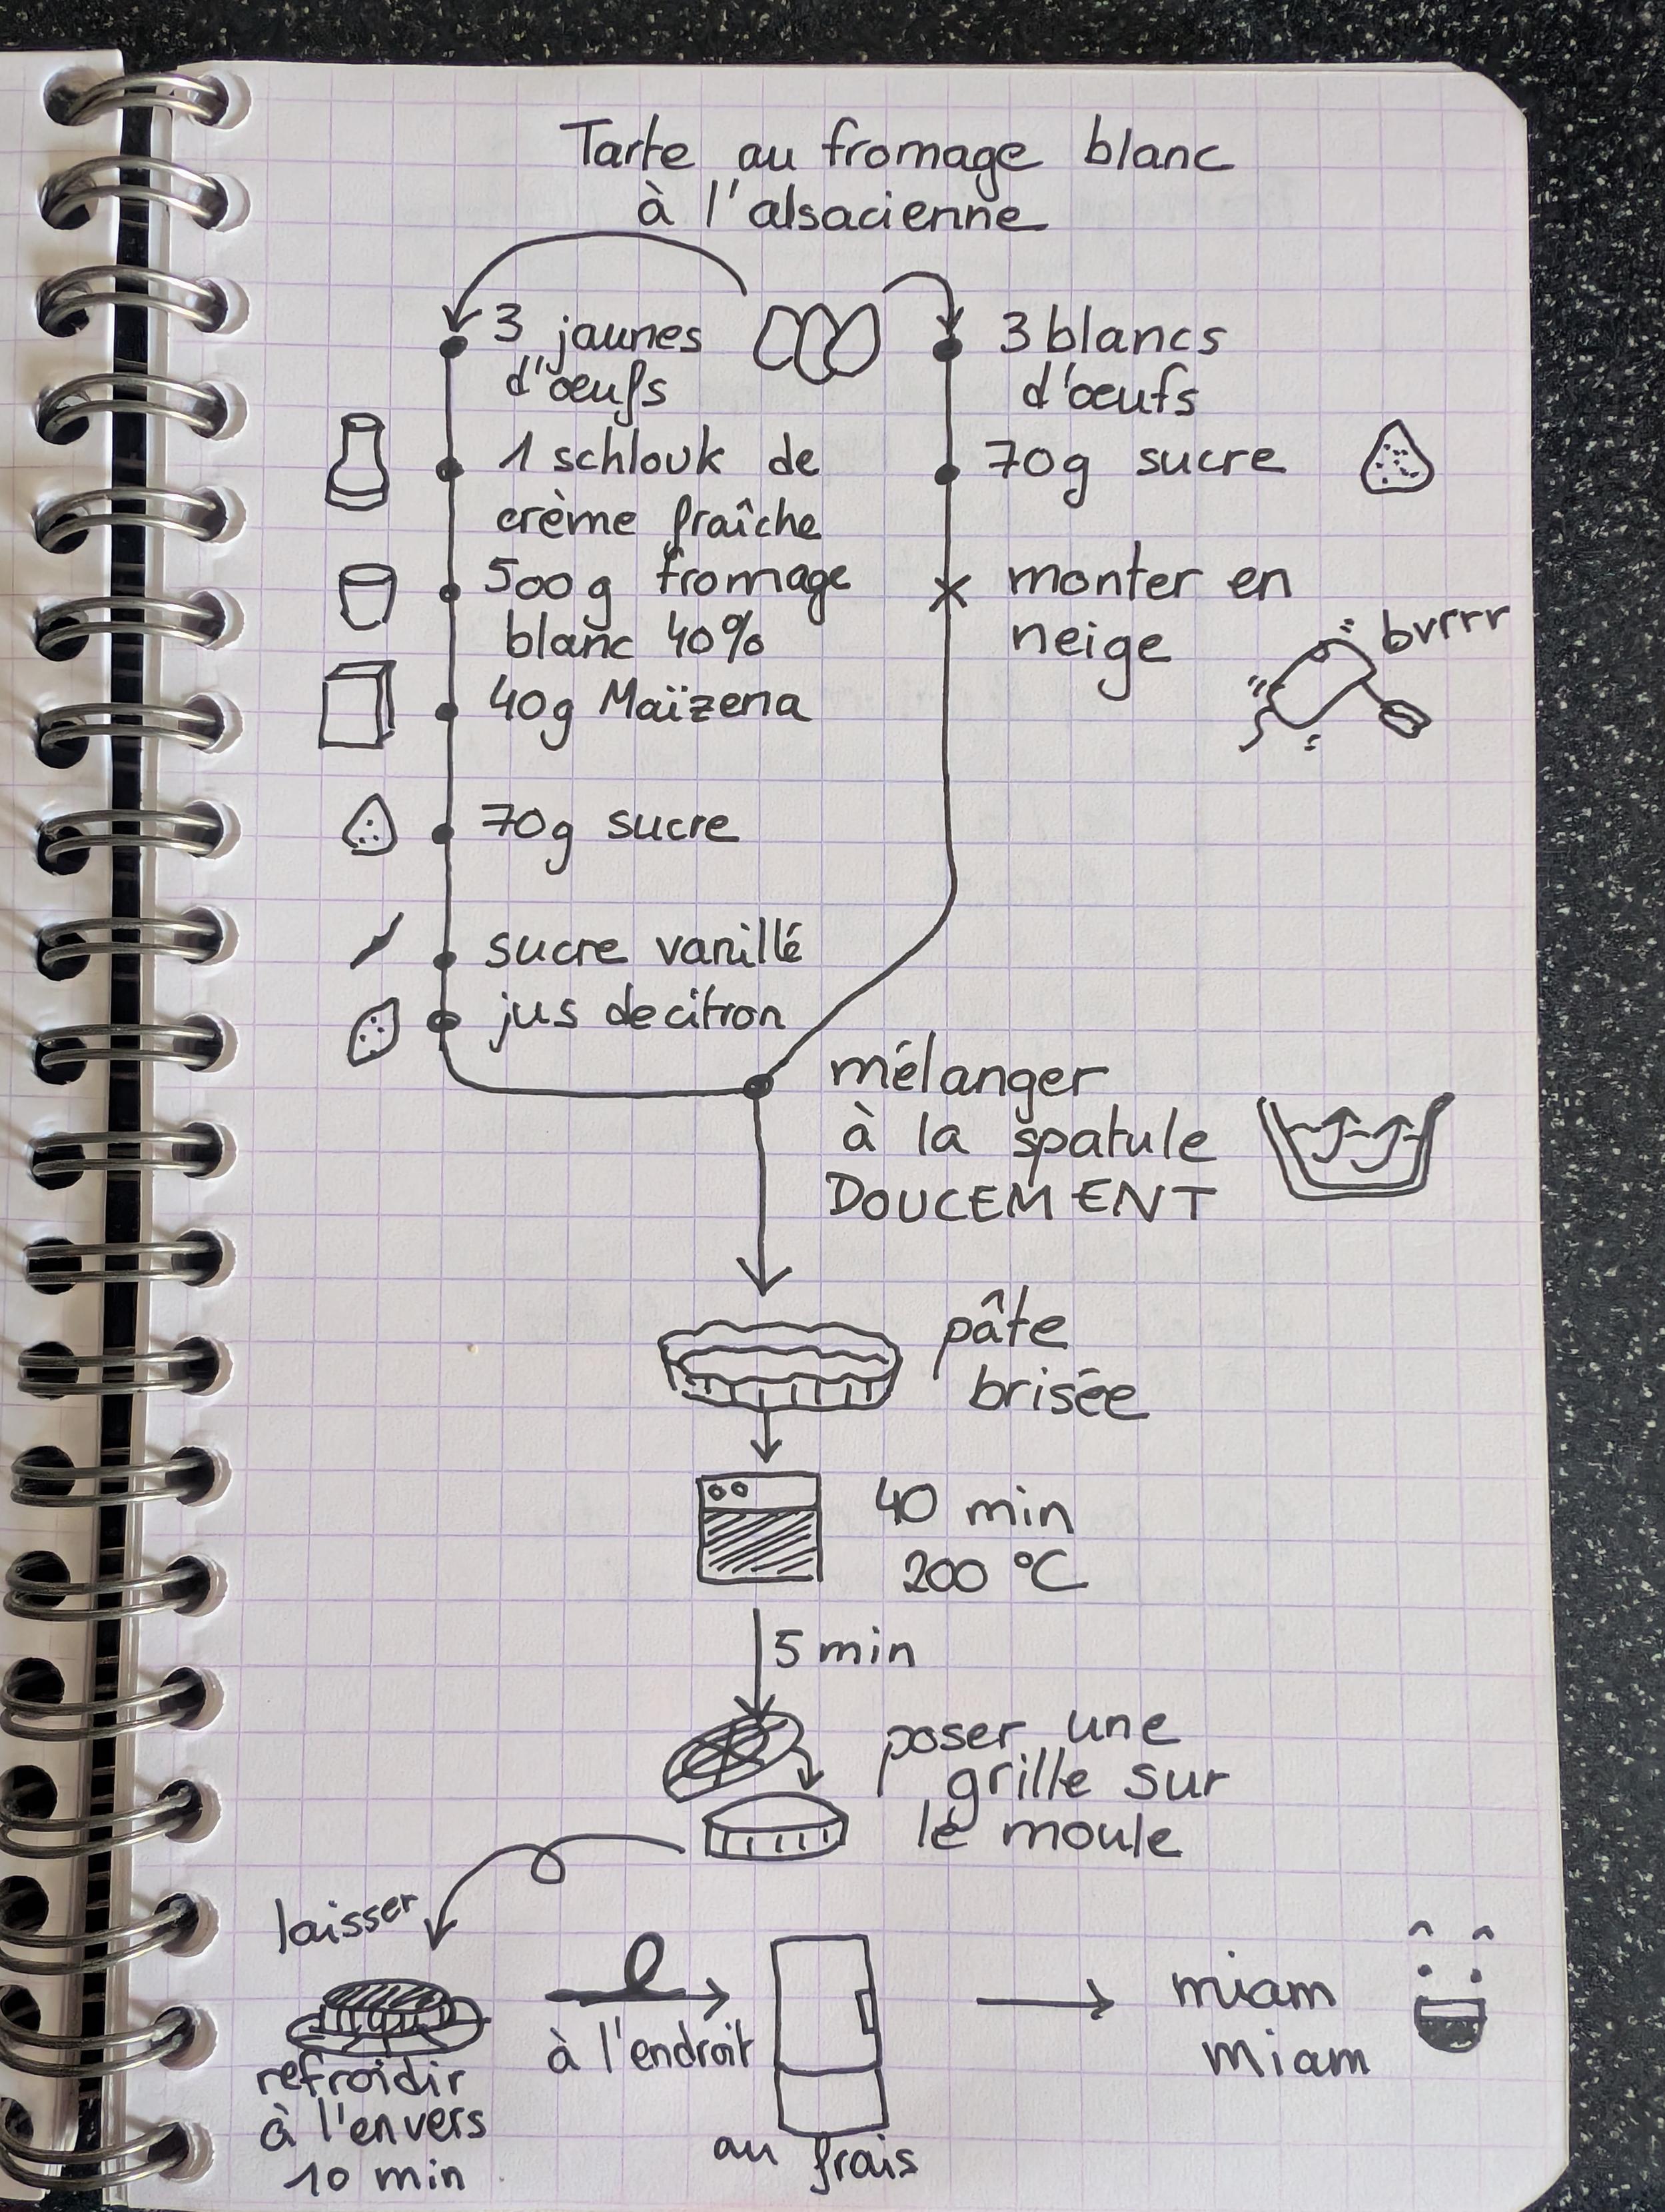 Tarte au fromage blanc
à l'alsacienne
3 jaunes
d'œufs
1 schlouk de
crème fraîche
500g fromage
blanc 40%
40g Maïzena
70g sucre
sucre vanillé
jus de citron
3 blancs
d'œufs
70g sucre
monter en
neige
bvrrr
mélanger
à la spatule
DOUCEMENT
pâte
brisée
40 min
200 °C
5 min
poser une
grille sur
le moule
laisser
refroidir
à l'envers
10 min
à l'endroit
au frais
miam
miam